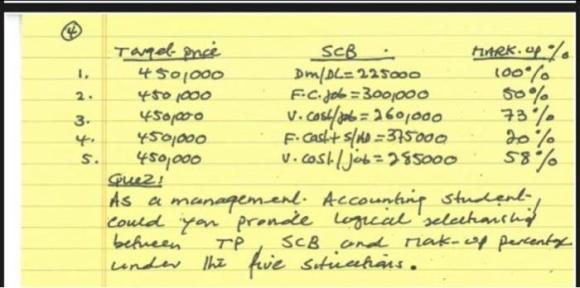 ④
Target price SCB. MARK-up %
1. 450,000 Dm/DL=225000 100%
2. 450,000 F.C. job = 300,000 50%
3. 450,000 V. cost/job = 260,000 73%
4. 450,000 F. Cost + S/AD = 375000 20%
5. 450,000 V. cost/job = 285000 58%
Quez:
As a management. Accounting student,
could you provide logical relationship
between TP, SCB and Mark-up percentage
under the five situations.